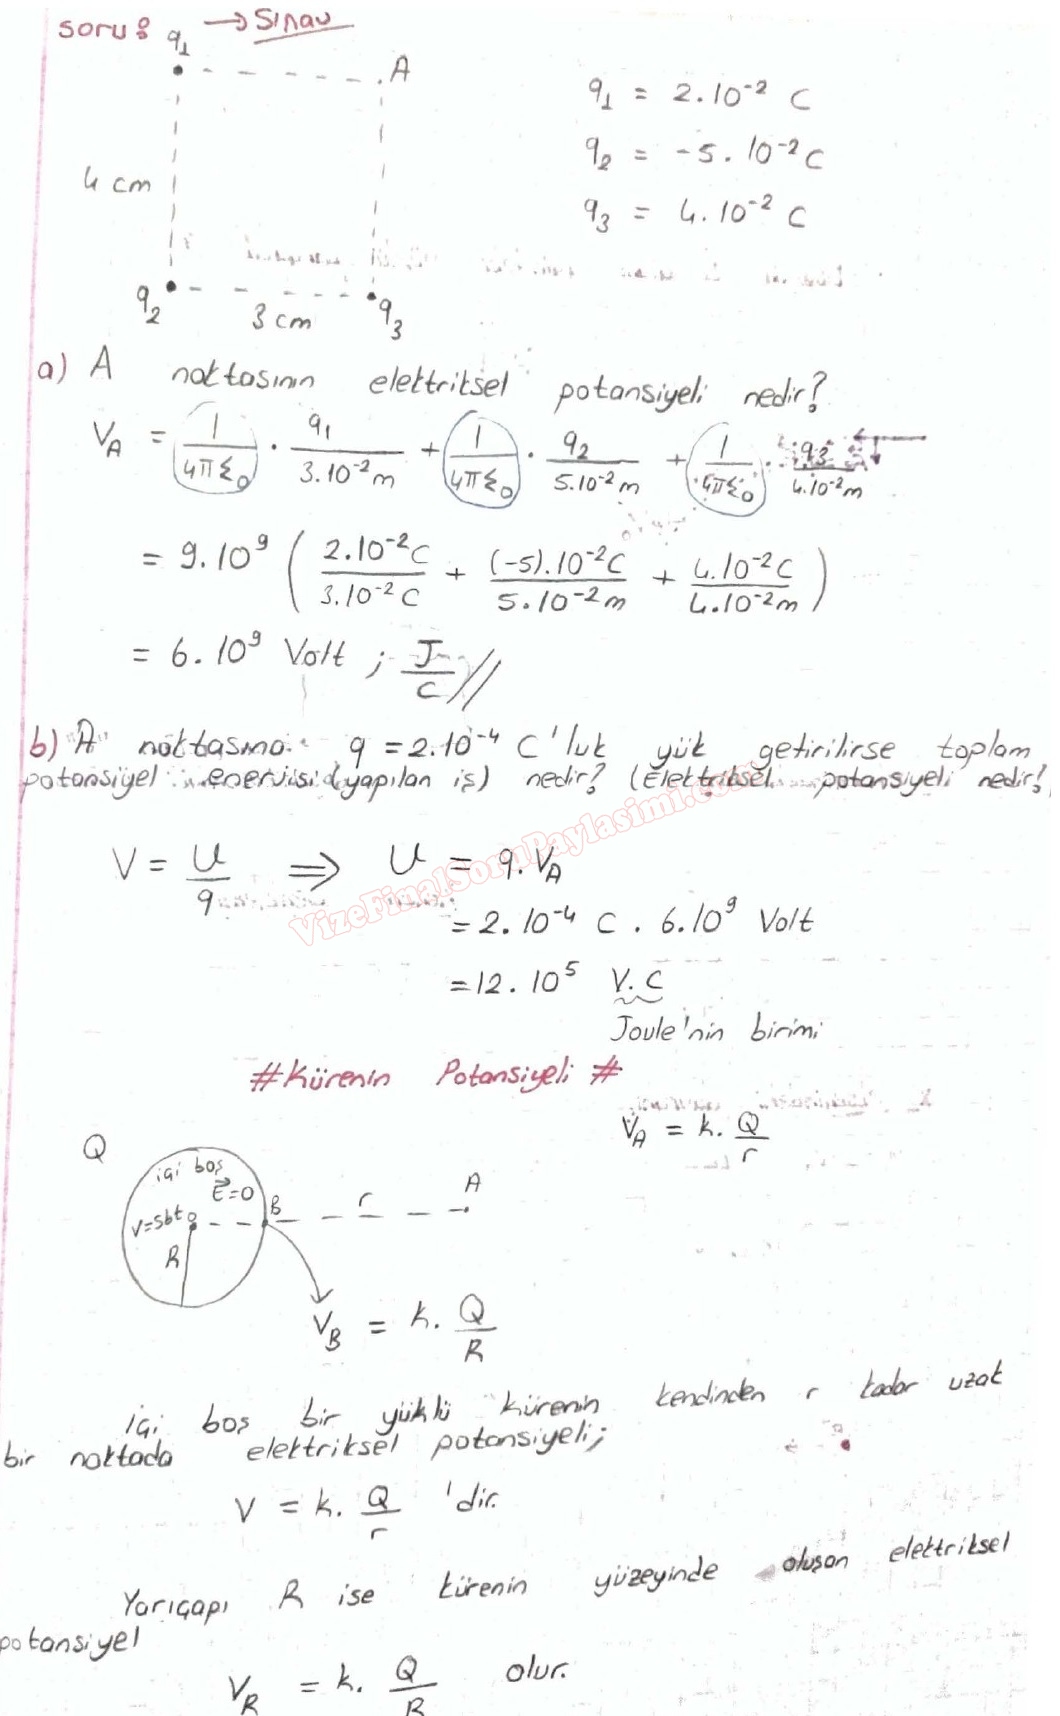 Soru: → Sınav
q1
A
q1 = 2.10⁻² C
q2 = -5.10⁻² C
q3 = 4.10⁻² C
4 cm
q2
3 cm
q3
a) A noktasının elektriksel potansiyeli nedir?
VA = 1/4πε0 . q1/3.10⁻²m + 1/4πε0 . q2/5.10⁻²m + 1/4πε0 . q3/4.10⁻²m
= 9.10⁹ ( 2.10⁻²C/3.10⁻²C + (-5).10⁻²C/5.10⁻²m + 4.10⁻²C/4.10⁻²m )
= 6.10⁹ Volt ; J/C //
b) "A" noktasına q = 2.10⁻⁴ C'luk yük getirilirse toplam
potansiyel enerjisi (yapılan iş) nedir? (Elektriksel potansiyeli nedir?
VizeFinalSoruPaylasimi.com
V = U/q ⇒ U = q.VA
= 2.10⁻⁴ C . 6.10⁹ Volt
= 12.10⁵ V.C
Joule'nin birimi
# Kürenin Potansiyeli #
VA = k. Q/r
Q
içi boş
E⃗=0
V=sbt
B
r
A
R
VB = k. Q/R
İçi boş bir yüklü kürenin kendinden r kadar uzak
bir noktada elektriksel potansiyeli;
V = k. Q/r 'dir.
Yarıçapı R ise kürenin yüzeyinde oluşan elektriksel
potansiyel
VR = k. Q/R olur.